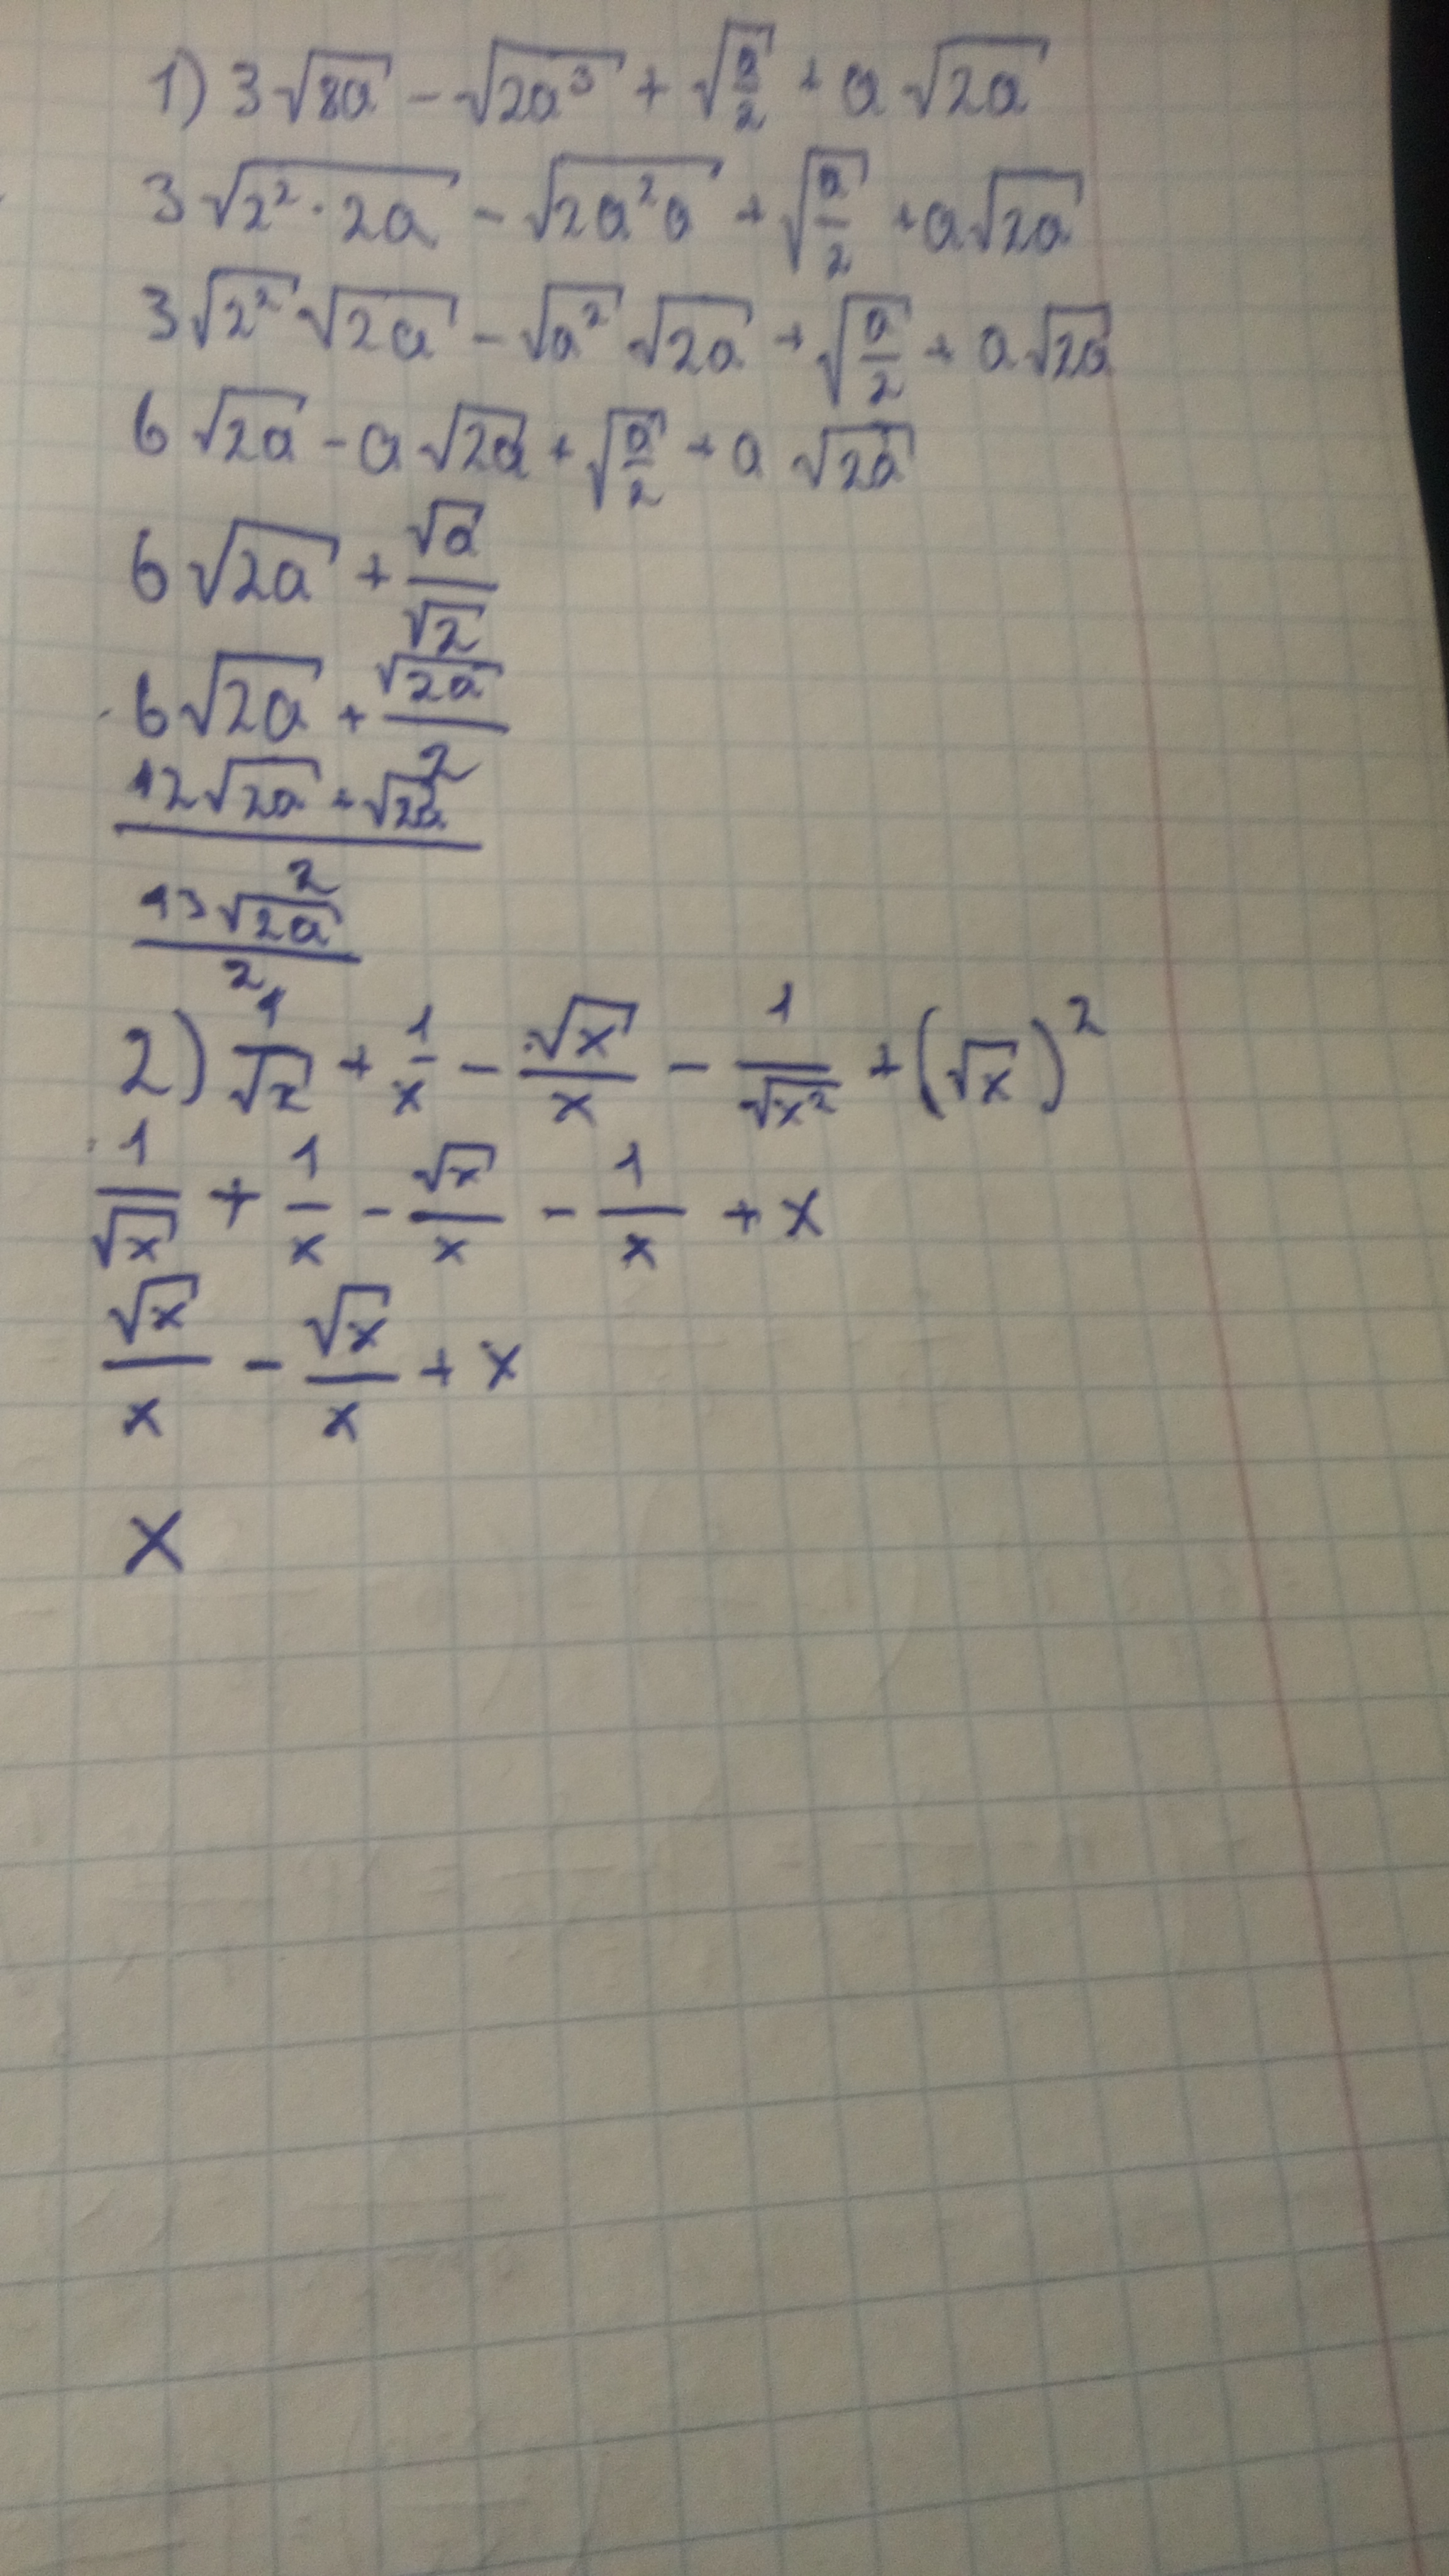 1) 3√(8a) - √(2a³) + √(a/2) + a√(2a)
3√(2²·2a) - √(2a²a) + √(a/2) + a√(2a)
3√(2²)√(2a) - √(a²)√(2a) + √(a/2) + a√(2a)
6√(2a) - a√(2a) + √(a/2) + a√(2a)
6√(2a) + √a/√2
6√(2a) + √(2a)/2
(12√(2a) + √(2a))/2
13√(2a)/2
2) 1/√x + 1/x - √x/x - 1/√(x²) + (√x)²
1/√x + 1/x - √x/x - 1/x + x
√x/x - √x/x + x
x